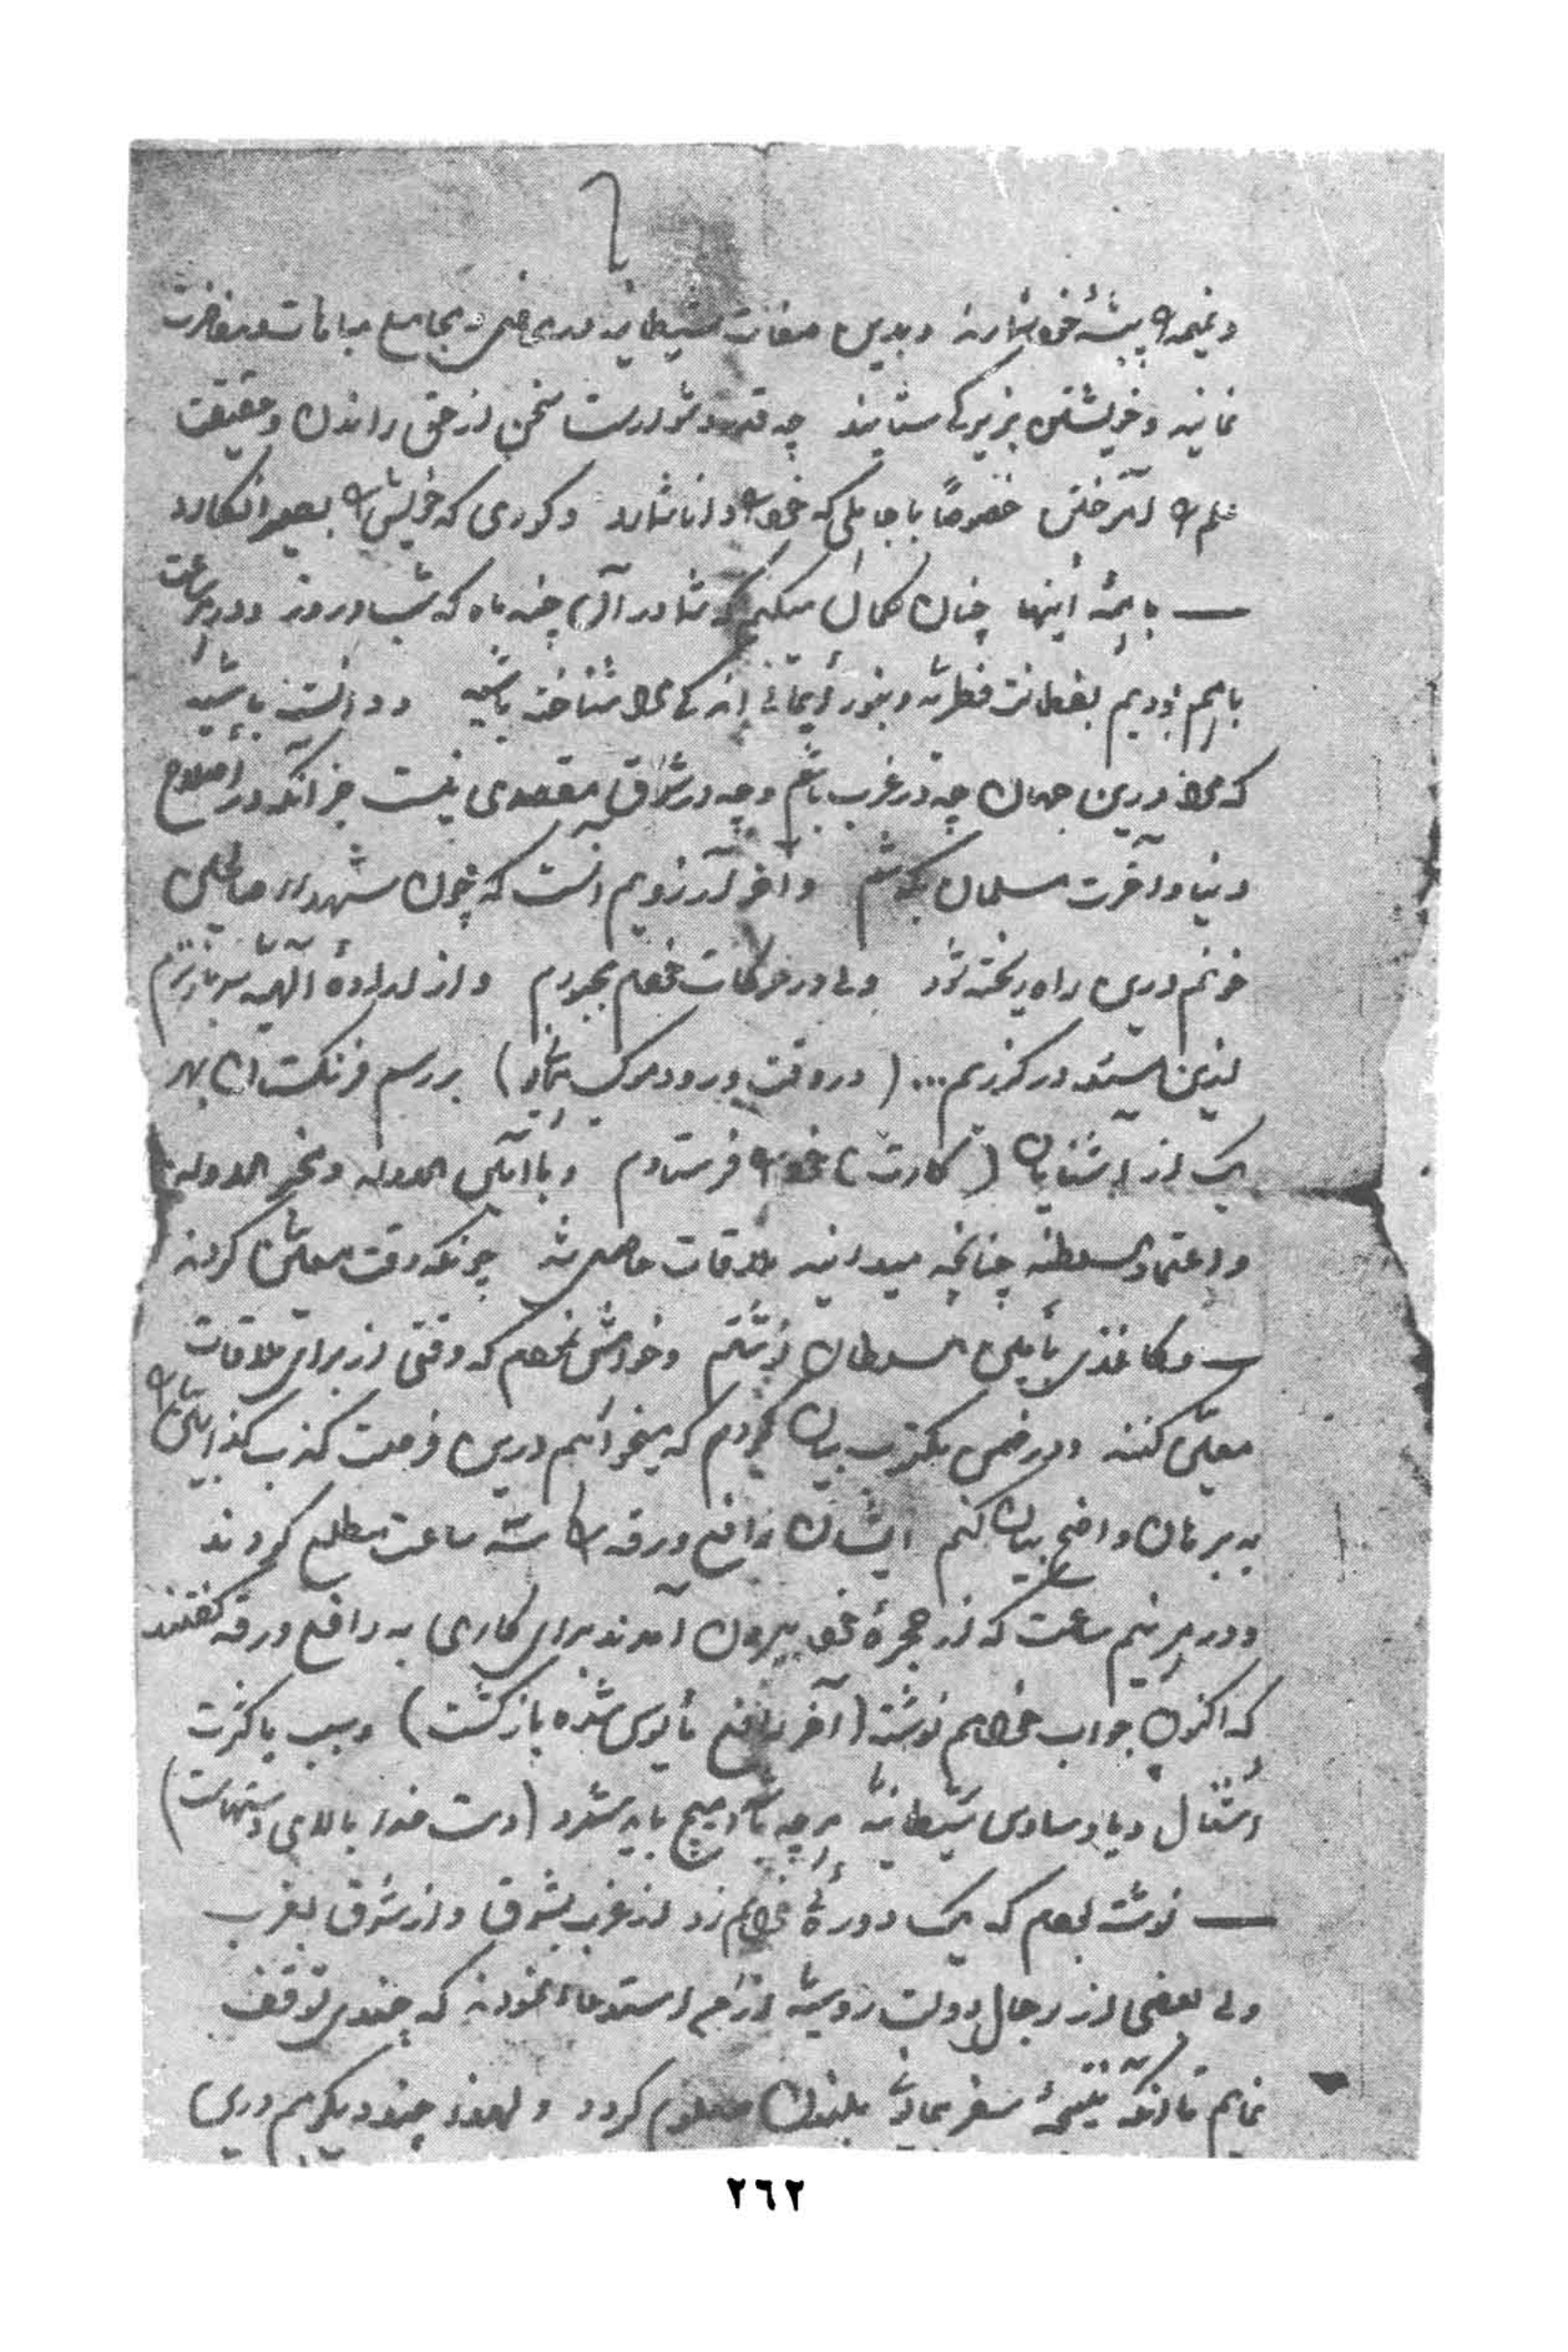 و نمیمه را پیشهٔ خود شمارند و بدین صفات شیطانیه در محافل و مجامع مباهات و مفاخرت
نمایند و خویشتن بزیرکی ستایند چه قدر دشوار است سخن از حق راندن و حقیقت
علم را آموختن خصوصاً با جاهلی که خود را دانا شمارد و کوری که خویش را بصیر انگارد
— با همهٔ اینها چنان گمان میکنم که شما در آن چند ماه که شب و روز و در هر ساعت
باهم بودیم بفطانت فطریه و بنور ایمانی اندکی مرا شناخته باشید و دانسته باشید
که مرا درین جهان چه در غرب باشم و چه در شرق مقصدی نیست جز آنکه در اصلاح
دنیا و آخرت مسلمان بکوشم و آخر آرزویم آنست که چون شهداء صالحین
خونم درین راه ریخته شود ولی در حرکات خود مجبورم و از ارادهٔ الهیه سر باز نزنم
ازین مسئله درگذریم ... (در وقت ورود مرکب همایونی) بر رسم فرنگستان بهر
یک از آشنایان (کارت) خود را فرستادم و با امین الدوله و مخبر الدوله
و اعتماد السلطنه چنانچه میدانید ملاقات حاصل شد چونکه وقت معین کردند
— و کاغذی بامین السلطان نوشتم و خواهش نمودم که وقتی از برای ملاقات
معین کنند و در ضمن مکتوب بیان کردم که میخواهم درین فرصت کذب کذابین را
به برهان واضح بیان کنم ایشان رافع ورقه را سه ساعت معطل کردند
و در هر نیم ساعت که از حجرهٔ خود بیرون آمدند برای کاری به رافع ورقه گفتند
که اکنون جواب خواهم نوشت (آخر رافع مأیوس شده بازگشت) و سبب یا کثرت
اشغال و یا وساوس شیطانیه هر چه باشد هیچ باید شمرد (دست خدا بالای دستهاست)
— نوشته بودم که یک دورهٔ خواهم زد از غرب بشرق و از شرق بغرب
ولی بعضی از رجال دولت روسیه ازم استدعا نمودند که چندی توقف
نمایم تا آنکه نتیجهٔ سفر همایونی بلندن معلوم گردد و لهذا چندی دیگر هم درین
٢٦٢